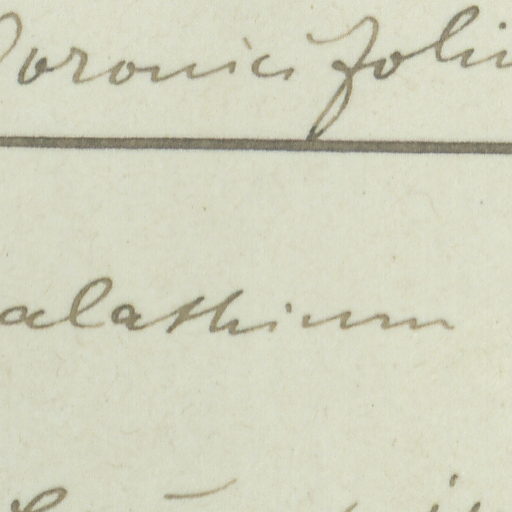 Doronicifoliu
alathium